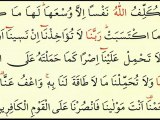 يُكَلِّفُ اللَّهُ نَفْسًا إِلَّا وُسْعَهَا لَهَا مَا كَ
مَا اكْتَسَبَتْ رَبَّنَا لَا تُؤَاخِذْنَا إِنْ نَسِينَا أَ
لَا تَحْمِلْ عَلَيْنَا إِصْرًا كَمَا حَمَلْتَهُ عَلَى
نَا وَلَا تُحَمِّلْنَا مَا لَا طَاقَةَ لَنَا بِهِ وَاعْفُ عَنَّا
مْنَا أَنْتَ مَوْلَانَا فَانْصُرْنَا عَلَى الْقَوْمِ الْكَافِرِينَ